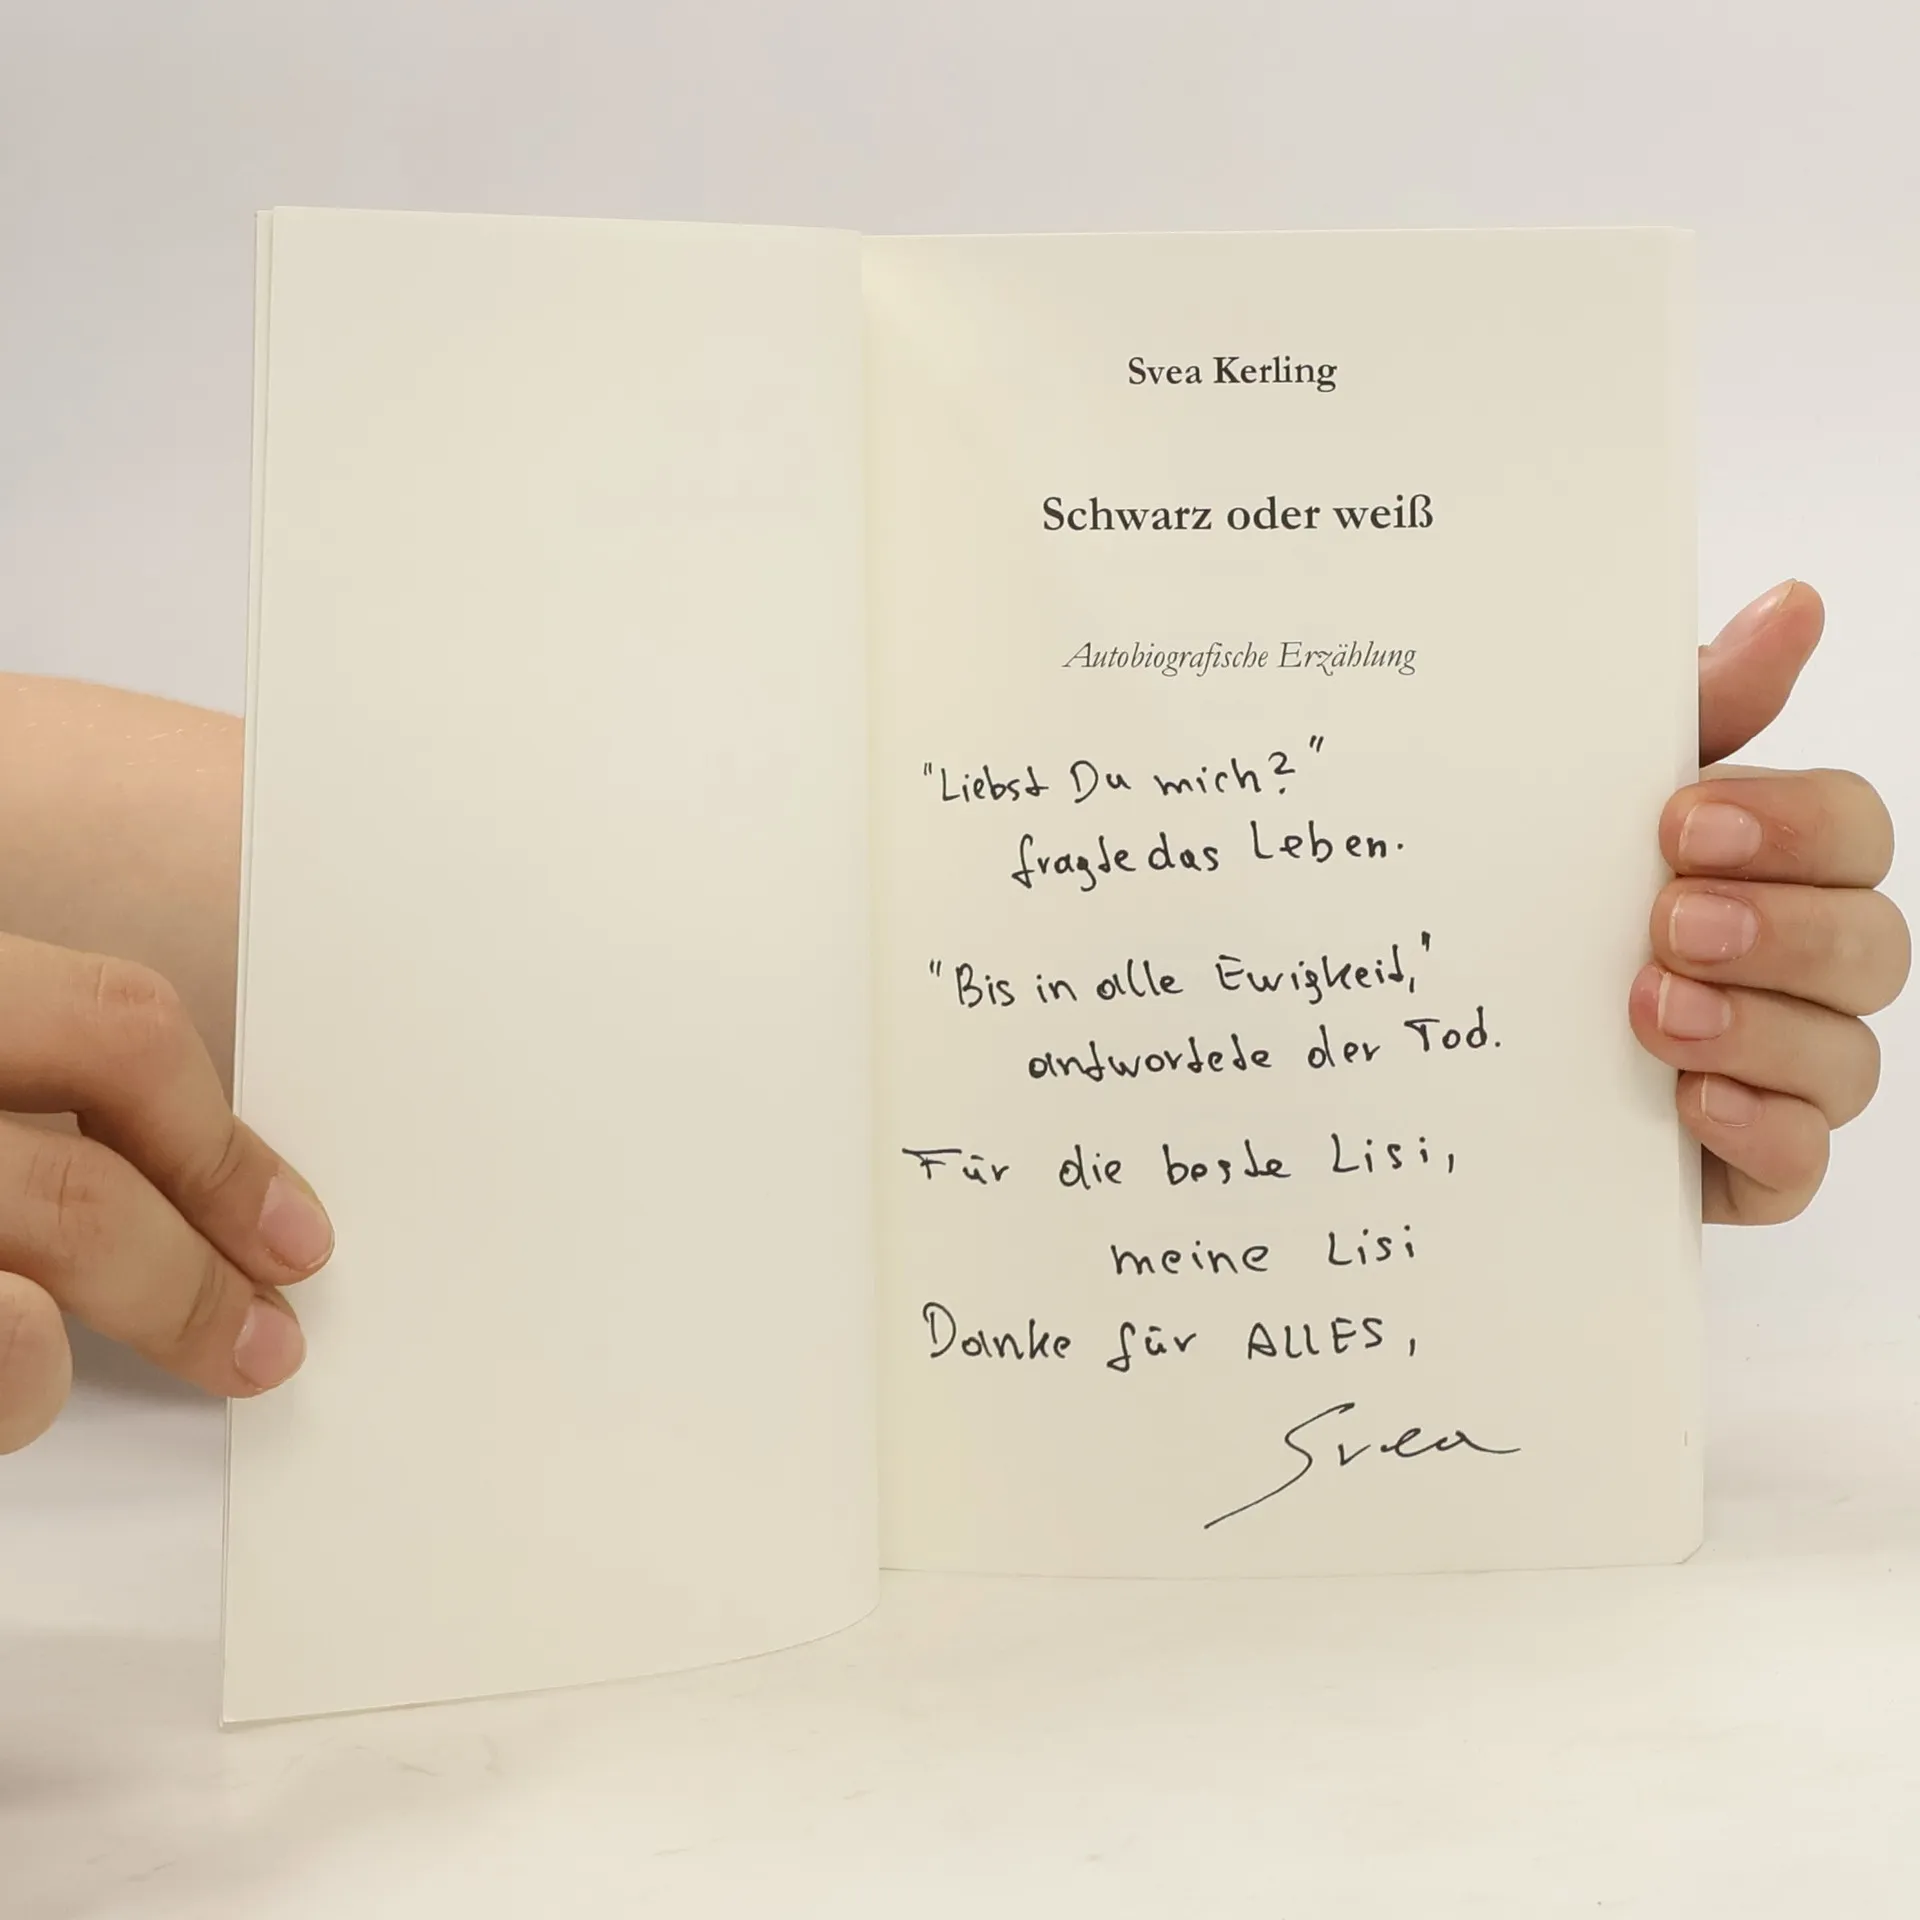 Svea Kerling
Schwarz oder weiß
Autobiografische Erzählung
"Liebst Du mich?"
fragte das Leben.
"Bis in alle Ewigkeit,"
antwortete der Tod.
Für die beste Lisi,
meine Lisi
Danke für ALLES,
Svea